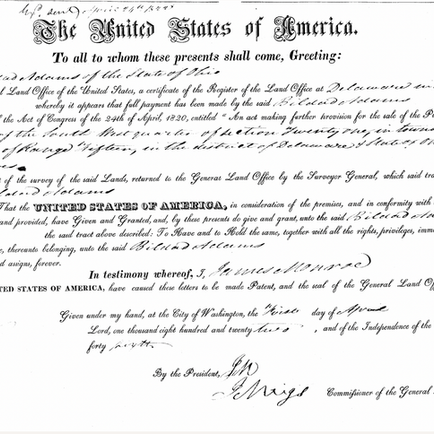 The United States of America.
To all to whom these presents shall come, Greeting:
Adams of the State of Ohio
l Land Office of the United States, a certificate of the Register of the Land Office at Delaware
whereby it appears that full payment has been made by the said Adams
f the Act of Congress of the 24th of April, 1820, entitled “An act making further provision for the sale of the P
of the South West quarter of section Twenty one in town
of Range Fifteen, in the district of Delaware & State of
t of the survey of the said Lands, returned to the General Land Office by the Surveyor General, which said tra
Adams
That the UNITED STATES OF AMERICA, in consideration of the premises, and in conformity with
and provided, have Given and Granted, and, by these presents do give and grant, unto the said
the said tract above described: To Have and to Hold the same, together with all the rights, privileges, imm
e, thereunto belonging, unto the said Adams
d assigns, forever.
In testimony whereof, I, James Monroe
ITED STATES OF AMERICA, have caused these letters to be made Patent, and the seal of the General Land Offi
Given under my hand, at the City of Washington, the First day of April
Lord, one thousand eight hundred and twenty two , and of the Independence of the
forty sixth
By the President, JM
Commissioner of the General